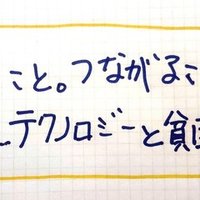 こと。つながるこ
テクノロジーと貧